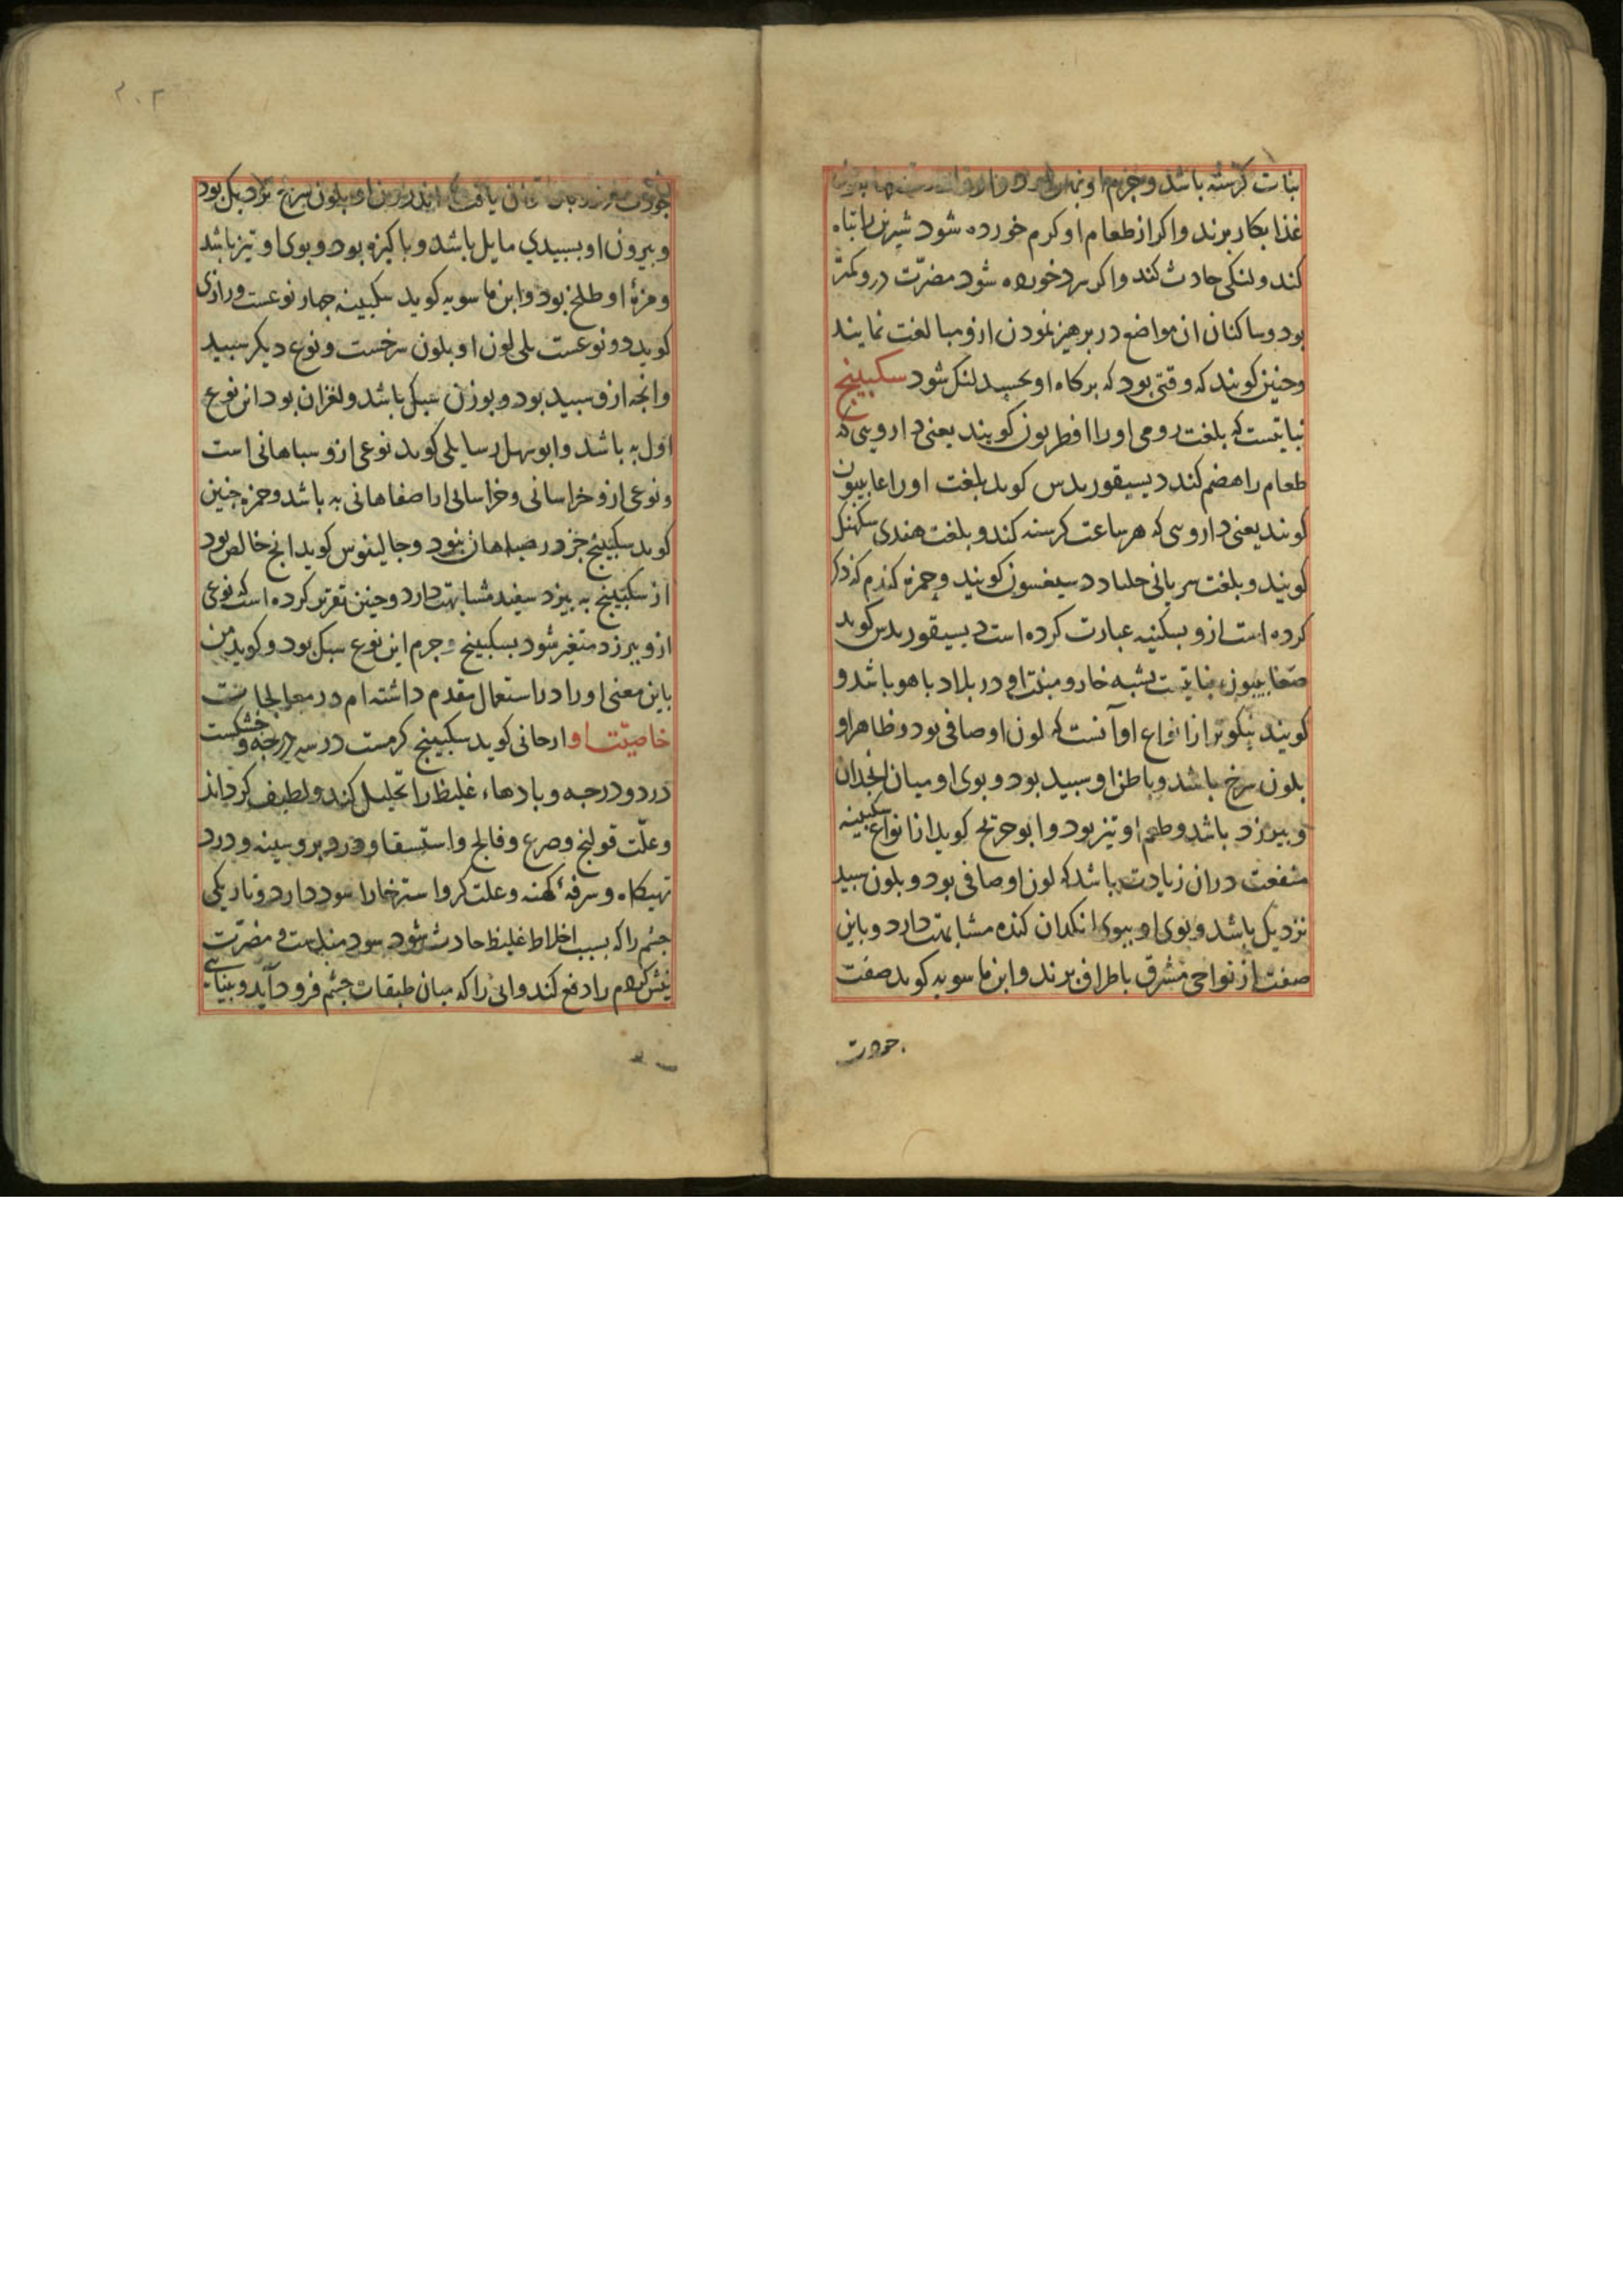 بنات کرسنه باشد و جرم او
غذا بکار برند واکر از طعام او کرم خورده شود شیرین را تباه
کند ولنکی حادث کند واکر سرد خورده شود مضرّت درو کمتر
بود وساکنان ان مواضع در برهیز نمودن ازو مبالغت نمایند
وجنین کویند که وقتی بود که بر کاه او بخسبد لنک شود سکبینج
نباتیست که بلغت رومی اورا افطریون کویند یعنی دارویی که
طعام را هضم کند دیسیقوریدس کوید بلغت اورا اغابیون
کویند یعنی داروسی که هر ساعت کرسنه کند و بلغت هندی سکهنک
کویند و بلغت سریانی حلباد دسیغسون کویند وحمزه که ذکر
کرده است ازو بسکبنه عبارت کرده است دیسیقوریدس کوید
صغابیون نباتیست بشبه خار ومنبت او در بلاد باهو باشد و
کویند نیکوتر از انواع او آنست که لون او صافی بود وظاهر او
بلون سرخ باشد وباطن او سبید بود وبوی او میان انجدان
و بیرزد باشد وطعم او تیز بود وابو جریح کوید از انواع سکبینه
منفعت دران زیادت باشد که لون او صافی بود و بلون سبید
نزدیک باشد وبوی او ببوی انکدان کنده مشابهت دارد وباین
صفت از نواحی مشرق باطراف برند وابن ماسویه کوید صفت
جودت
۲۰۲
جودت اندرون او بلون سرخ نزدیک بود
وبیرون او بسبیدی مایل باشد وباکیزه بود وبوی او تیز باشد
ومزهٔ او طلخ بود وابن ماسویه کوید سکبینه جهار نوعست ورازی
کوید دو نوعست یکی لون او بلون سرخست ونوع دیکر سبید
وانجه ازو سبید بود وبوزن سبک باشد ولغزان بود از نوع
اول به باشد وابو سهل رسایلی کوید نوعی ازو سباهانی است
ونوعی ازو خراسانی وخراسانی از اصفاهانی به باشد وحمزه جنین
کوید سکبینج جز در صباهان نبود وجالینوس کوید انج خالص بود
از سکبینج به بیرزد سفید مشابهت دارد وجنین تقریر کرده است که نوعی
ازو بیرزد متغیر شود بسکبینج و جرم این نوع سبک بود وکوید من
باین معنی اورا در استعمال مقدم داشته ام در معالجات
خاصیّت او ارجانی کوید سکبینج کرمست در سه درجه و خشکست
در دو درجه وبادهاء غلیظ را تحلیل کند ولطیف کرداند
وعلّت قولنج وصرع وفالج واستسقا ودرد بر وسینه ودرد
تهیکاه وسرفهٔ کهنه وعلت کروا سترخا را سود دارد وتاریکی
جشم را که بسبب اخلاط غلیظ حادث شود سود مندست ومضرّت
نیش کژدم را دفع کند وابی را که میان طبقات جشم فرود آید وبینایی